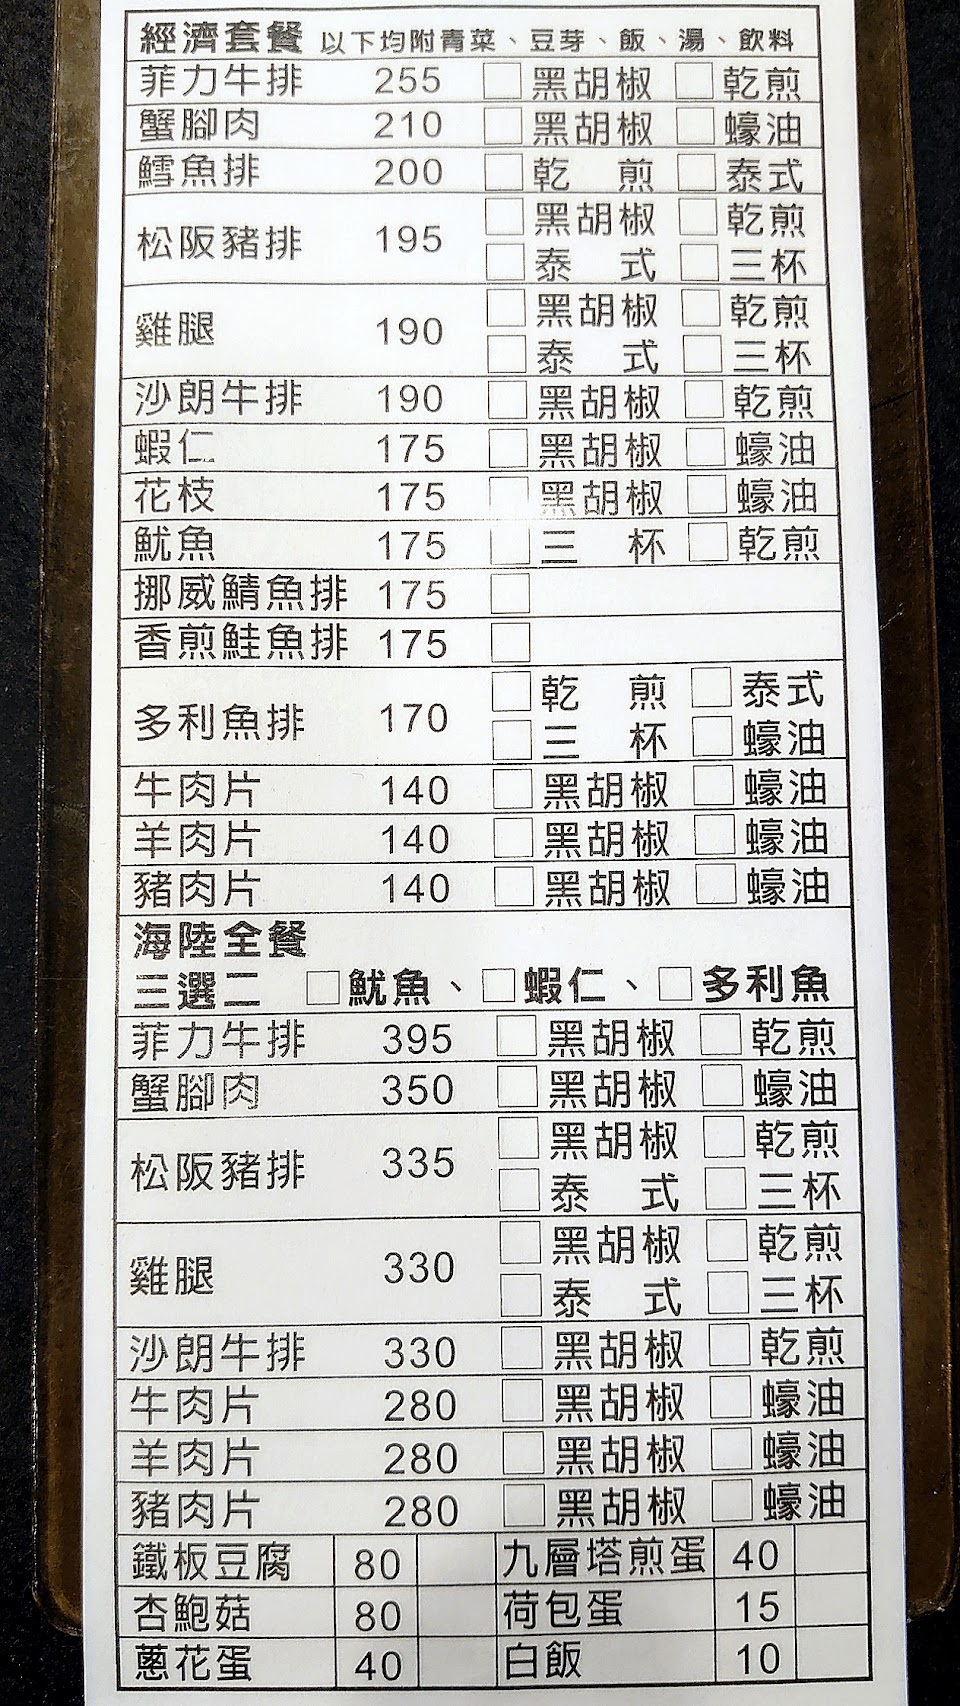 經濟套餐 以下均附青菜、豆芽、飯、湯、飲料
菲力牛排 255 □黑胡椒 □乾煎
蟹腳肉 210 □黑胡椒 □蠔油
鱈魚排 200 □乾 煎 □泰式
松阪豬排 195 □黑胡椒 □乾煎
□泰 式 □三杯
雞腿 190 □黑胡椒 □乾煎
□泰 式 □三杯
沙朗牛排 190 □黑胡椒 □乾煎
蝦仁 175 □黑胡椒 □蠔油
花枝 175 □黑胡椒 □蠔油
魷魚 175 □三 杯 □乾煎
挪威鯖魚排 175 □
香煎鮭魚排 175 □
多利魚排 170 □乾 煎 □泰式
□三 杯 □蠔油
牛肉片 140 □黑胡椒 □蠔油
羊肉片 140 □黑胡椒 □蠔油
豬肉片 140 □黑胡椒 □蠔油
海陸全餐
三選二 □魷魚、□蝦仁、□多利魚
菲力牛排 395 □黑胡椒 □乾煎
蟹腳肉 350 □黑胡椒 □蠔油
松阪豬排 335 □黑胡椒 □乾煎
□泰 式 □三杯
雞腿 330 □黑胡椒 □乾煎
□泰 式 □三杯
沙朗牛排 330 □黑胡椒 □乾煎
牛肉片 280 □黑胡椒 □蠔油
羊肉片 280 □黑胡椒 □蠔油
豬肉片 280 □黑胡椒 □蠔油
鐵板豆腐 80 九層塔煎蛋 40
杏鮑菇 80 荷包蛋 15
蔥花蛋 40 白飯 10